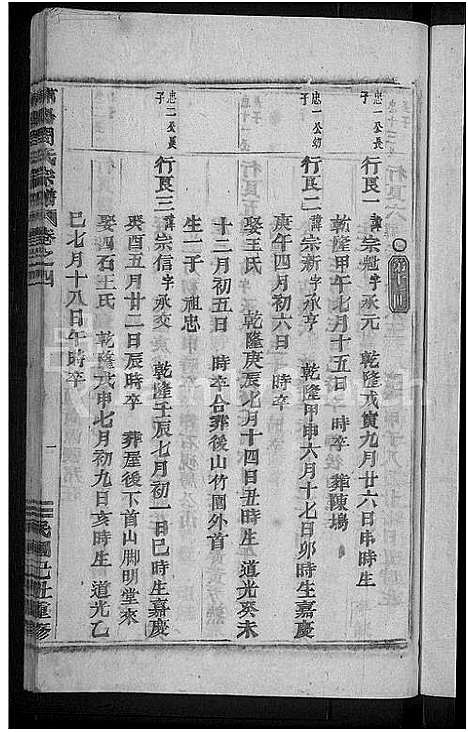 忠一公長子
行良一諱宗魁字永元 乾隆戊寅九月廿六日申時生
乾隆甲午七月十五日 時卒 葬陳塢
忠一公幼子
行良二諱宗新字永亨 乾隆甲申六月十七日卯時生嘉慶
庚午四月初六日 時卒
娶王氏 乾隆庚辰 月十四日丑時生 道光癸未
十二月初五日 時卒合葬後山竹園外首
生一子 祖忠
忠二公長子
行良三諱宗信字永交 乾隆壬辰七月初一日巳時生嘉慶
癸酉五月廿二日辰時卒 葬屋後下首山脚明堂來
娶四石王氏 乾隆戊申七月初九日亥時生 道光乙
巳七月十八日午時卒
周氏宗譜 卷之四
一
民國己丑重修